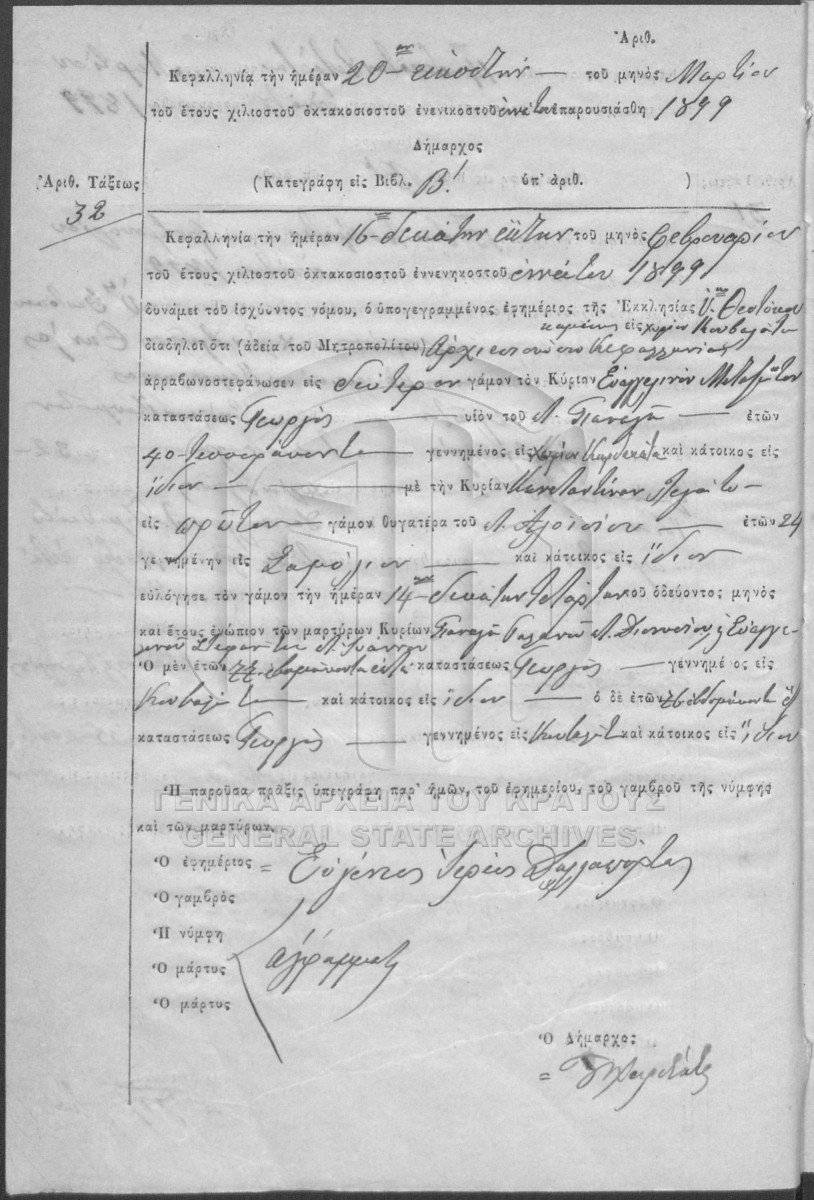 Ἀριθ.
Κεφαλληνία τὴν ἡμέραν 20ην εἰκοστὴν τοῦ μηνὸς Μαρτίου
τοῦ ἔτους χιλιοστοῦ ὀκτακοσιοστοῦ ἐνενικοστοῦ ἐννάτου ἐπαρουσιάσθη 1899
Δήμαρχος
Ἀριθ. Τάξεως
(Κατεγράφη εἰς Βιβλ. Β! ὑπ' ἀριθ. )
32
Κεφαλληνία τὴν ἡμέραν 16 δεκάτην ἕκτην τοῦ μηνὸς Φεβρουαρίου
τοῦ ἔτους χιλιοστοῦ ὀκτακοσιοστοῦ ἐννενηκοστοῦ ἐννάτου 1899
δυνάμει τοῦ ἰσχύοντος νόμου, ὁ ὑπογεγραμμένος ἐφημέριος τῆς Ἐκκλησίας Ὑ. Θεοτόκου
εἰς χωρίον Κουβαλάτα
διαδηλοῖ ὅτι (ἀδεία τοῦ Μητροπολίτου) Ἀρχιεπισκόπου Κεφαλληνίας
ἀρραβωνοστεφάνωσεν εἰς δεύτερον γάμον τὸν Κύριον Εὐαγγελινὸν Μεταξᾶτον
καταστάσεως Γεωργὸς υἱὸν τοῦ Παναγῆ ἐτῶν
40 τεσσαράκοντα γεννημένος εἰς χωρίον καὶ κάτοικος εἰς
ἴδιον μὲ τὴν Κυρίαν Κωνσταντίναν
εἰς πρῶτον γάμον θυγατέρα τοῦ Ἀλοισίου ἐτῶν 24
γεννημένην εἰς Σαμόλιον καὶ κάτοικος εἰς ἴδιον
εὐλόγησε τὸν γάμον τὴν ἡμέραν 14ην δεκάτην τετάρτην τοῦ ὁδεύοντος μηνὸς
καὶ ἔτους ἐνώπιον τῶν μαρτύρων Κυρίων Παναγῆ Διονυσίου, & Εὐαγγε-
Ἰωάννου
Ὁ μὲν ἐτῶν 77 ἑβδομήκοντα ἑπτὰ καταστάσεως Γεωργὸς γεννημέος εἰς
Κουβαλάτα καὶ κάτοικος εἰς ἴδιον ὁ δὲ ἐτῶν ἑβδομήκοντα
καταστάσεως Γεωργὸς γεννημένος εἰς Κουβαλάτα καὶ κάτοικος εἰς ἴδιον
Ἡ παροῦσα πρᾶξις ὑπεγράφη παρ' ἡμῶν, τοῦ ἐφημερίου, τοῦ γαμβροῦ τῆς νύμφης
ΓΕΝΙΚΑ ΑΡΧΕΙΑ ΤΟΥ ΚΡΑΤΟΥΣ
καὶ τῶν μαρτύρων.
GENERAL STATE ARCHIVES
Ὁ ἐφημέριος = Εὐγένιος Ἱερεὺς Δαλλαπόρτας
Ὁ γαμβρὸς
Ἡ νύμφη
Ὁ μάρτυς ἀγράμματοι
Ὁ μάρτυς
Ὁ Δήμαρχος